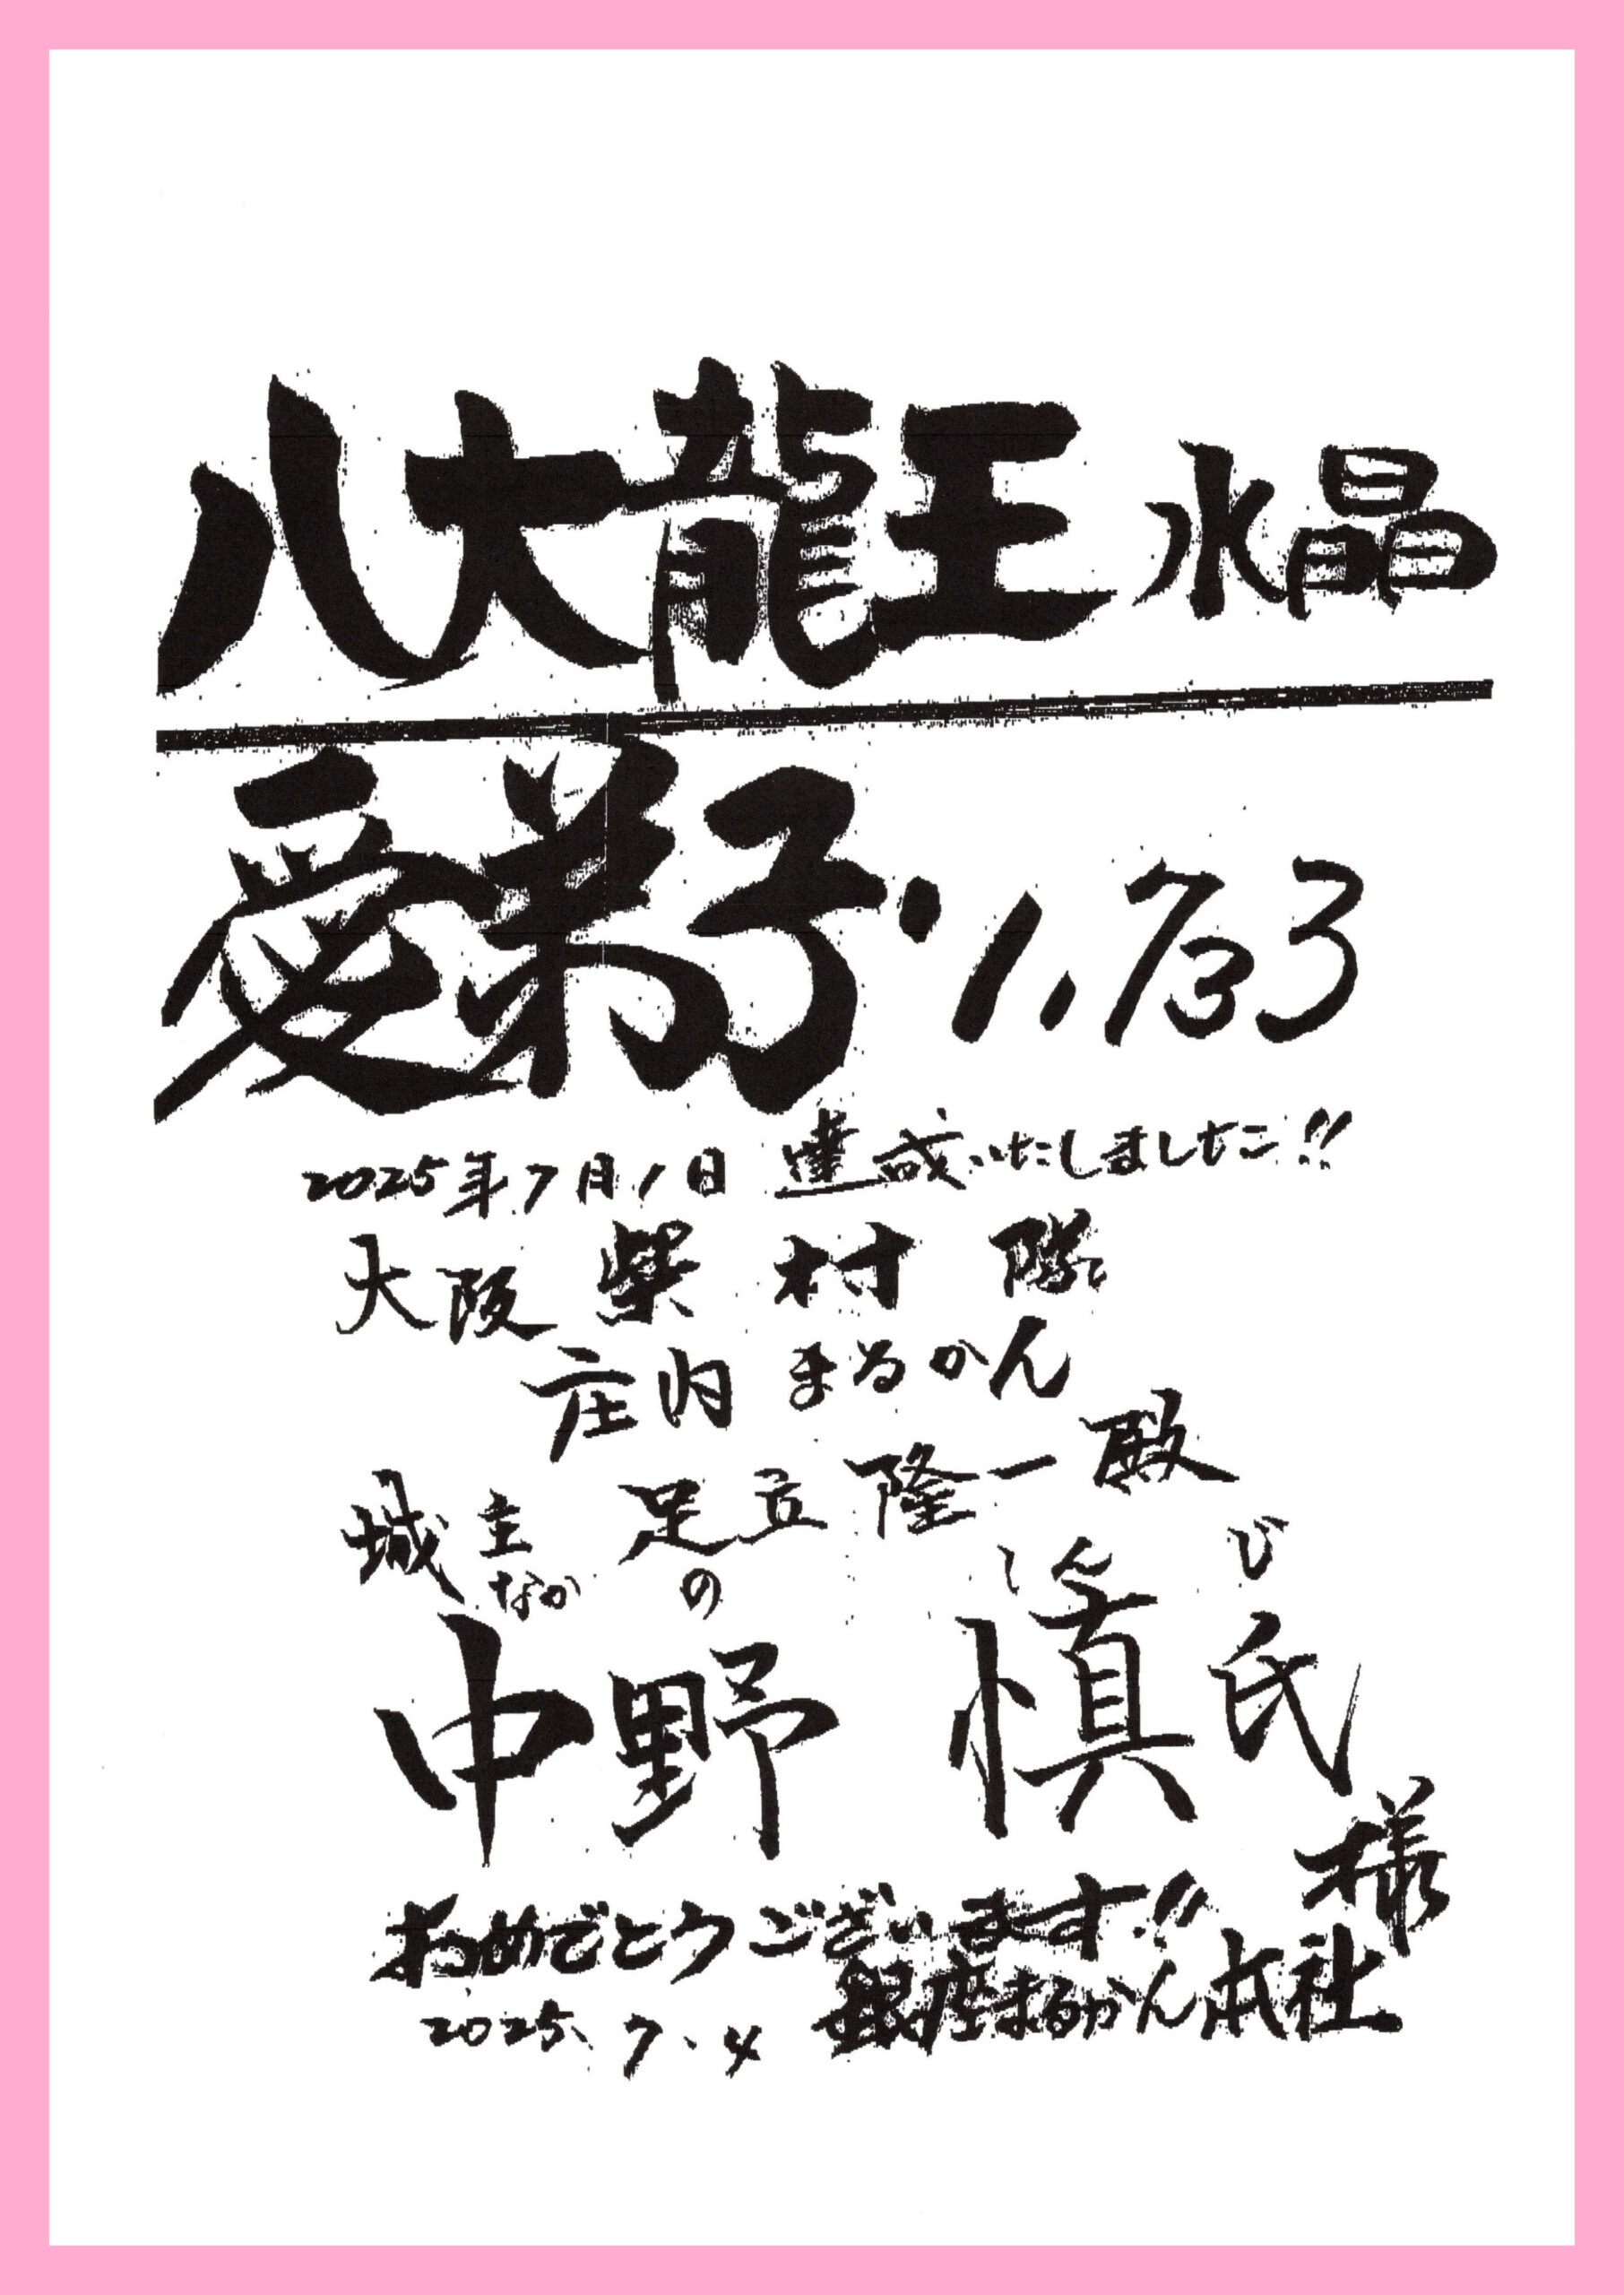 八大龍王水晶
愛弟子 1,733
2025年7月1日 達成いたしました!!
大阪 柴村隊
庄内 まるかん
城主 足立 隆一殿
なか の しん じ
中野 慎氏様
おめでとうございます!!
2025、7、4 銀座まるかん本社